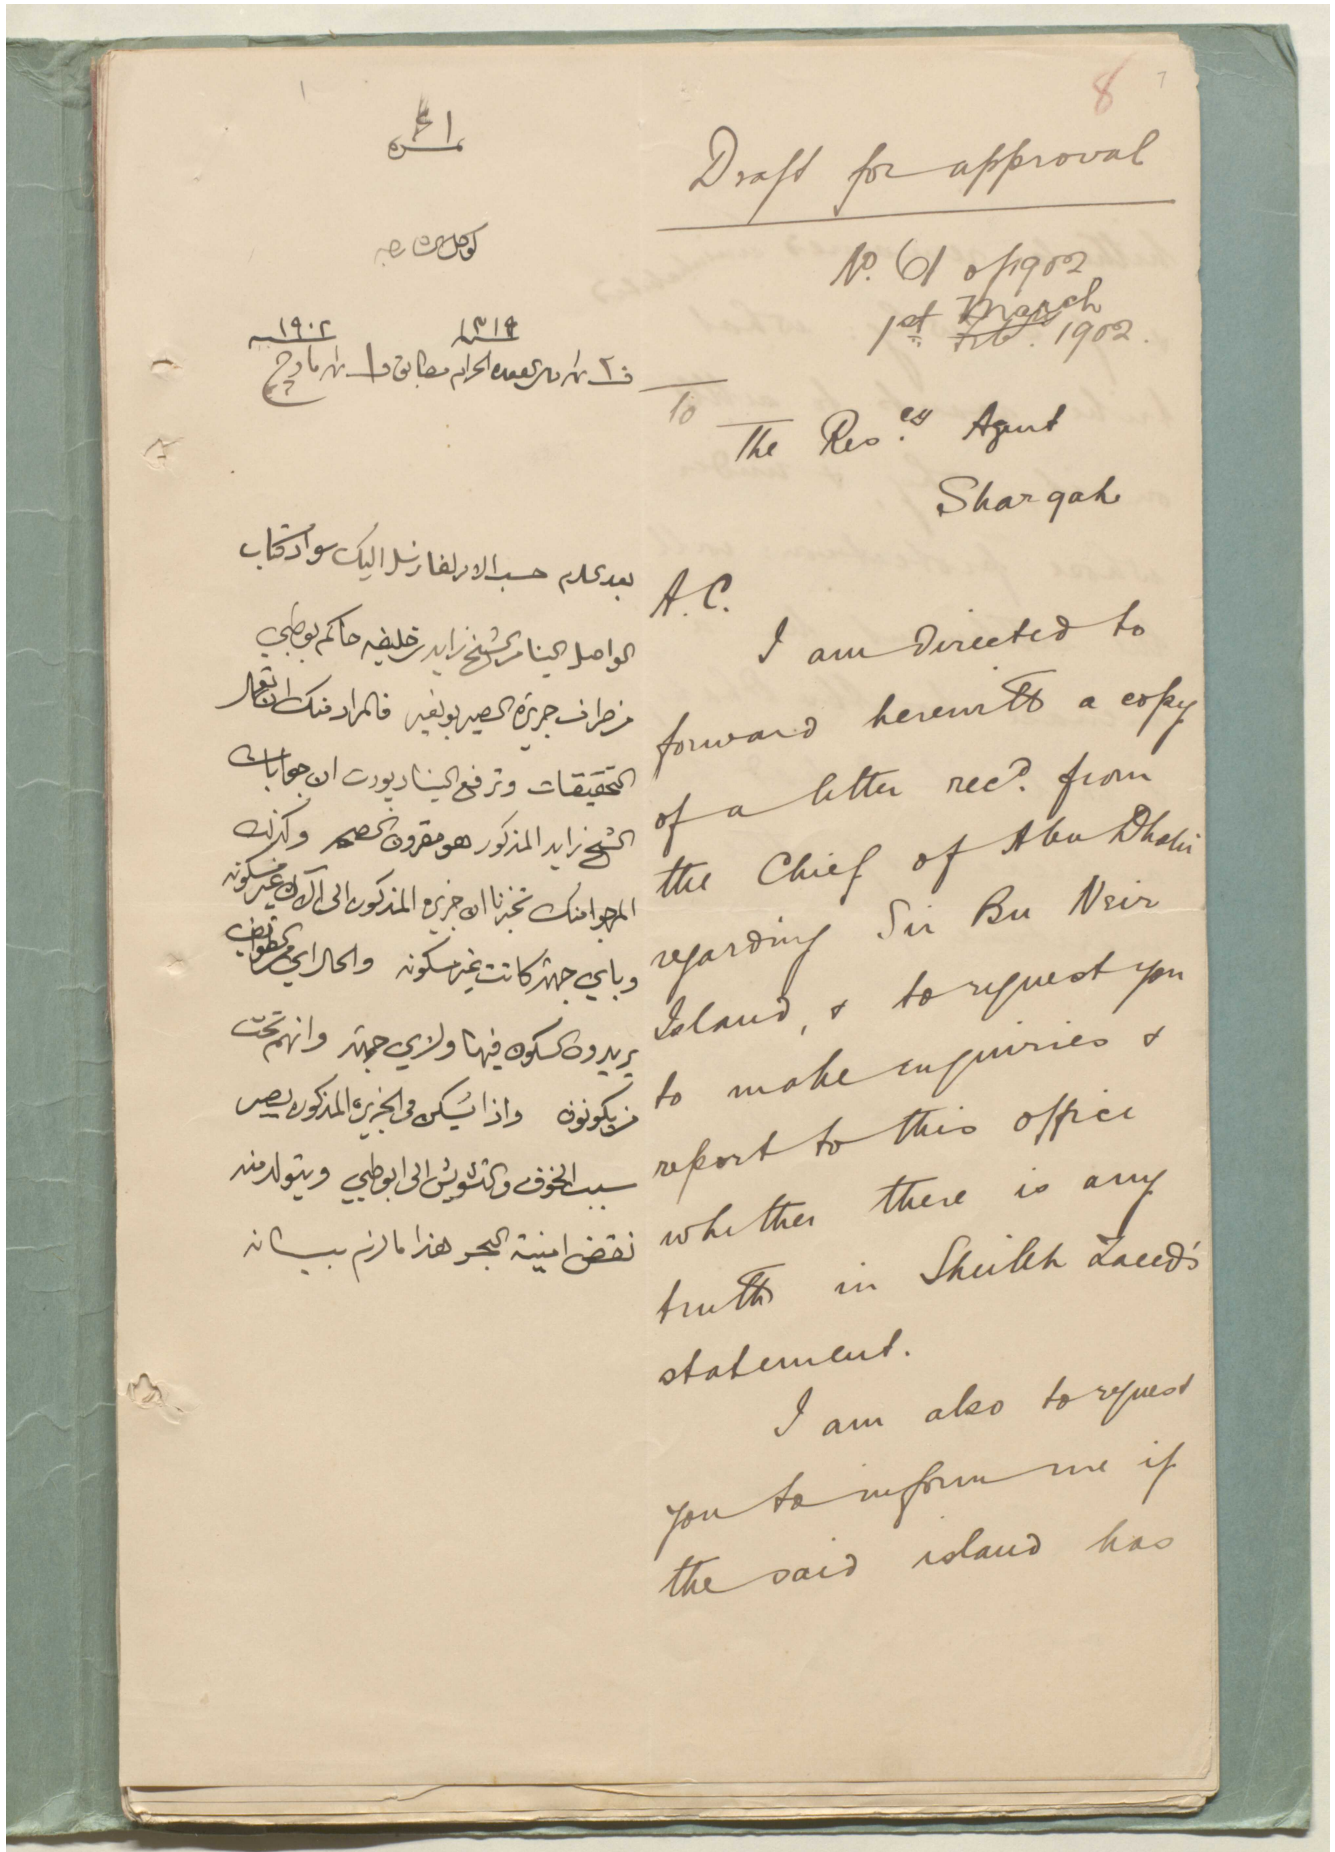 8
7
Draft for approval
No. 61 of 1902
1st March
Feb. 1902.
To
The Res.cy Agent
Shargah
A.C.
I am directed to
forward herewith a copy
of a letter recd. from
the Chief of Abu Dhabi
regarding Sir Bu Neir
Island, & to request you
to make enquiries &
report to this office
whether there is any
truth in Sheikh Zaeed's
statement.
I am also to request
you to inform me if
the said island has
نمره
١٣١٩ ١٩٠٢
الحرام مطابق مارچ
بعد السلام حسب الامر لفا نرسل اليك سواد كتاب
الواصل الينا من الشيخ زايد بن خليفه حاكم بوظبي
من طرف جزيرة الصير بونعير فالمراد منك ان تعمل
التحقيقات وترفع الينا ريورت ان جوابات
الشيخ زايد المذكور هو مقرون الصحه وكذلك
المرجو منك تخبرنا ان جزيره المذكوره الى الآن غير مسكونه
وباي جهة كانت غير مسكونه والحال اي من الطوائف
يريدون السكون فيها ولاي جهة وانهم تحت
من يكونون واذا يسكن في الجزيره المذكوره يصير
سبب الخوف والتشويش الى ابوظبي ويتولد منه
نقض امنية البحر هذا ما لزم بيانه